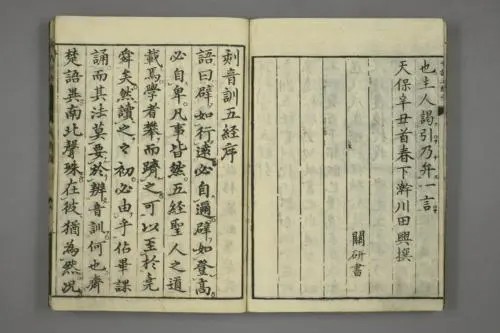 也主人謁引乃弁一言
天保辛丑首春下澣川田興撰
關研書
刻音訓五經序
語曰辟如行遠必自邇辟如登高
必自卑凡事皆然五經聖人之道
載焉學者攀而躋之可以至於堯
舜矣然讀之々初必由乎佔畢課
誦而其法莫要於辨音訓何也齊
楚語異南北聲殊在彼猶為然況